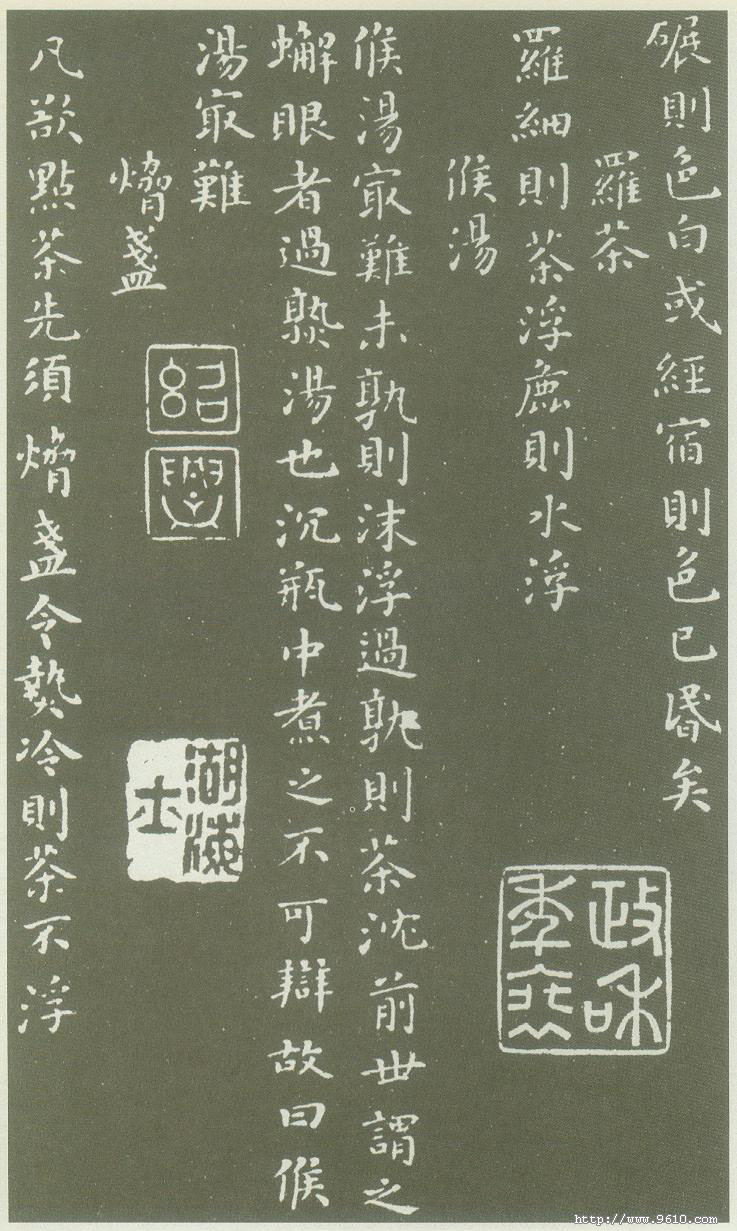 碾則色白或經宿則色已昬矣
羅茶
羅細則茶浮麁則水浮
候湯
候湯㝡難未孰則沫浮過孰則茶沈前世謂之
蠏眼者過熟湯也沉瓶中煮之不可辯故曰候
湯㝡難
熁盞
凡欲點茶先須熁盞令熱冷則茶不浮
紹興
湖海
士
政和
http://www.9610.com